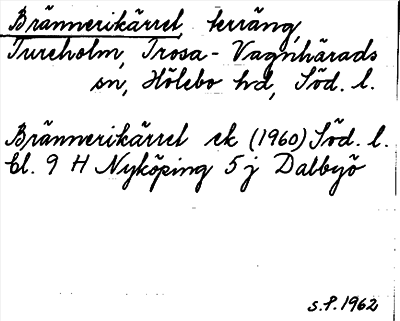 Brännerikärret, terräng,
Tureholm, Trosa-Vagnhärads
sn, Hölebo hd, Söd. l.
Brännerikärret ek (1960) Söd. l.
bl. 9 H Nyköping 5 j Dalbyö
S.P. 1962